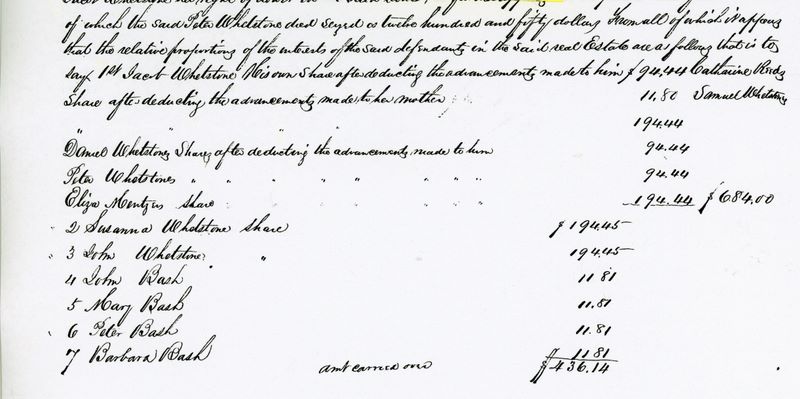 of which the said Peter Whetstone died seyed is twelve hundred and fifty dollars From all of which it appears
that the relative proportions of the interests of the said defendants in the said real Estate are as follows that is to
say 1st Jacob Whetstone His own share after deducting the advancements made to him $ 94.44 Catharine
Share after deducting the advancements made to her mother 11.80 Samuel Whetstone
" " " " 194.44
Daniel Whetstones Share after deducting the advancements made to him 94.44
Peter Whetstones " " " " " " " " 94.44
Eliza Mentzers share " " 194.44 $ 684.00
2 Susanna Whetstone share $ 194.45
3 John Whetstone " 194.45
4 John Bash 11.81
5 Mary Bash 11.81
6 Peter Bash 11.81
7 Barbara Bash $ 11.81
amt carried over $ 436.14